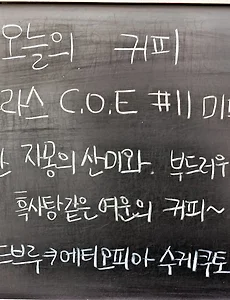 오늘의 커피
라스 C.O.E #11
자몽의 산미와. 부드러우
흑사탕같은 여운의 커피~
드브루⇒에티오피아 수케쿠토